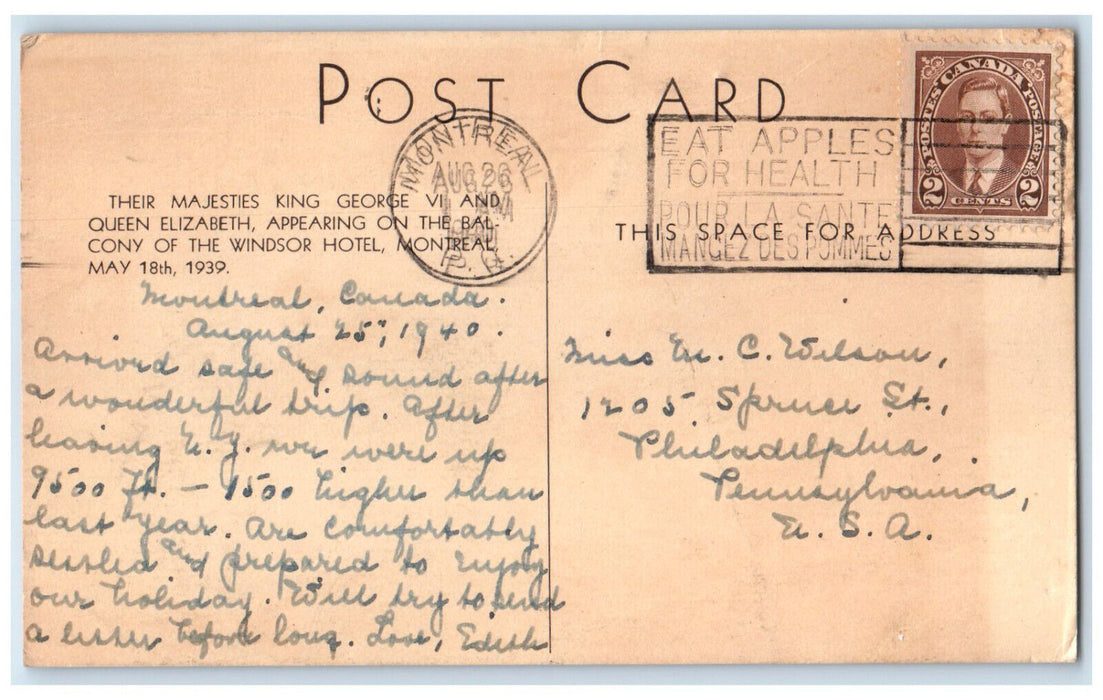 POST CARD
MONTREAL
AUG 26
AM
1940
P.Q.
EAT APPLES
FOR HEALTH
POUR LA SANTE
MANGEZ DES POMMES
POSTES CANADA POSTAGE
2 CENTS 2
THEIR MAJESTIES KING GEORGE VI AND
QUEEN ELIZABETH, APPEARING ON THE BAL-
CONY OF THE WINDSOR HOTEL, MONTREAL,
MAY 18th, 1939.
THIS SPACE FOR ADDRESS
Montreal, Canada.
August 25, 1940.
Arrived safe and sound after
a wonderful trip. After
leaving N.Y. we were up
9500 Ft. – 1500 higher than
last year. Are comfortably
settled and prepared to enjoy
our holiday. Will try to send
a letter before long. Love, Edith
Miss M. C. Wilson,
1205 Spruce St.,
Philadelphia,
Pennsylvania,
U. S. A.